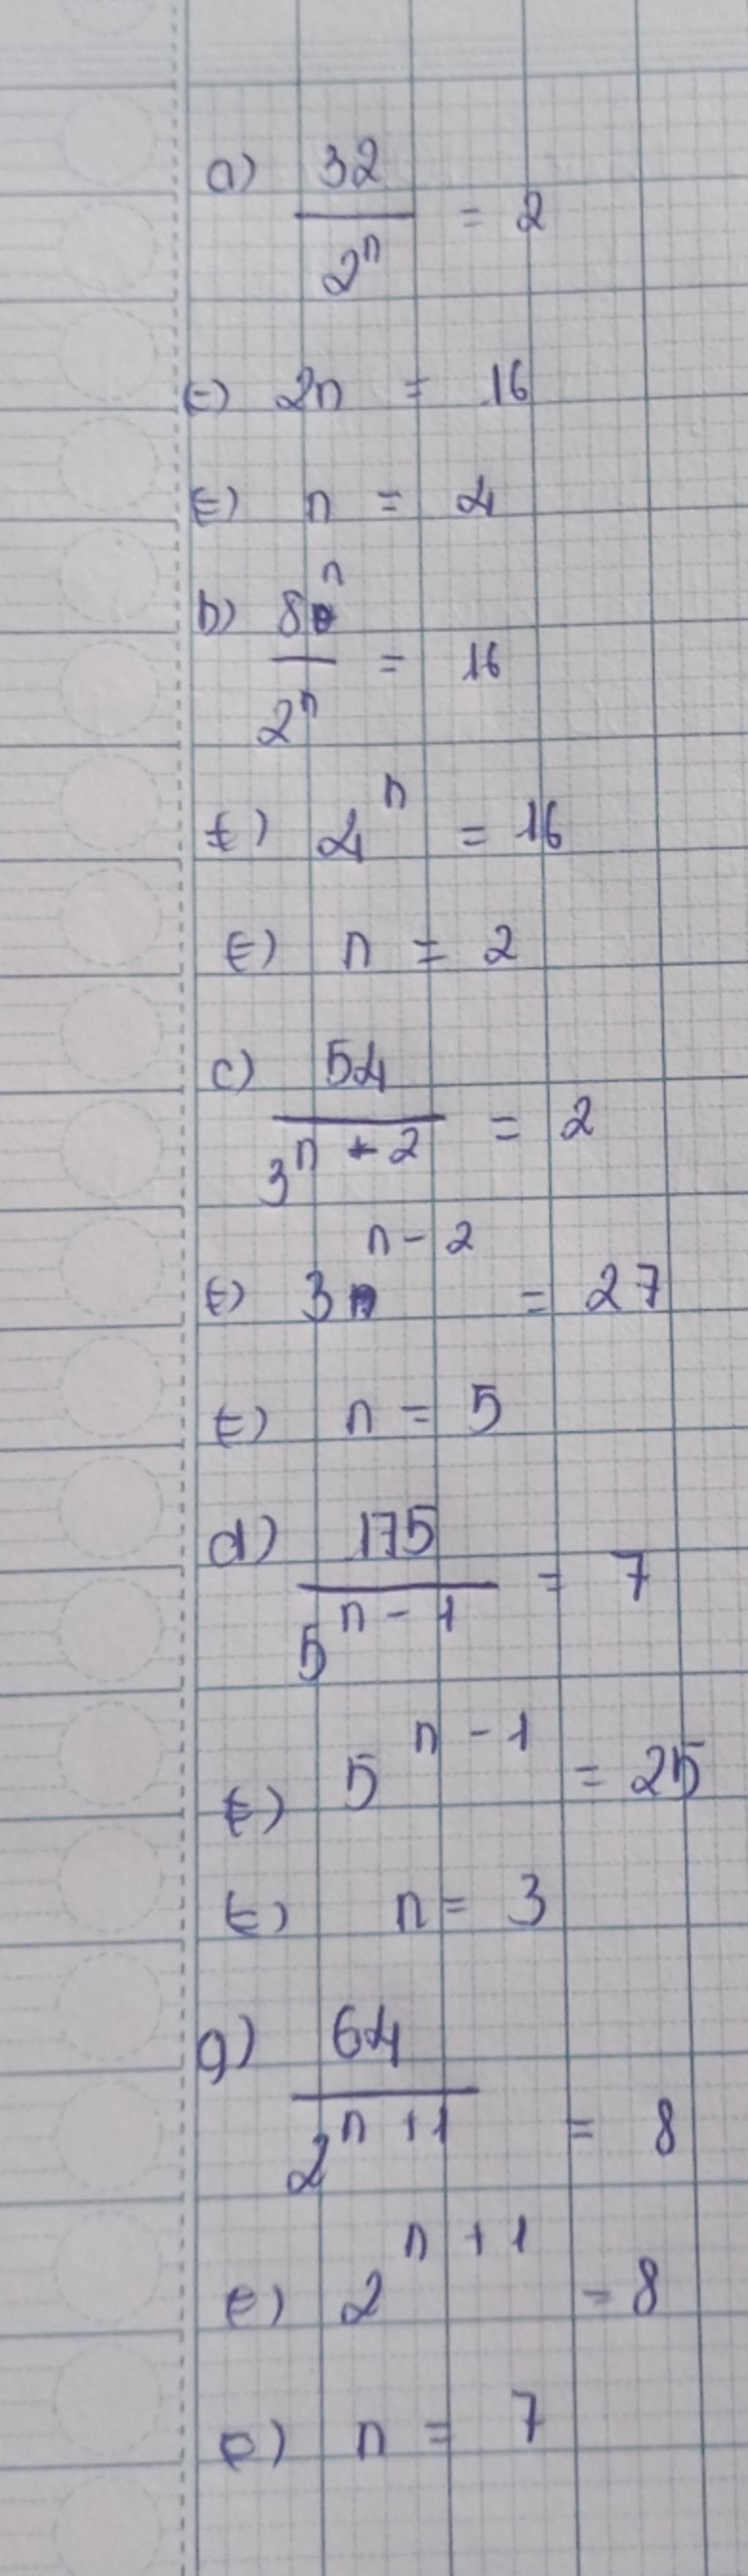 a) 32/2^n = 2
(=) 2n = 16
(=) n = 4
b) 8^n/2^n = 16
(=) 4^n = 16
(=) n = 2
c) 54/3^(n - 2) = 2
(=) 3^(n - 2) = 27
(=) n = 5
d) 175/5^(n - 1) = 7
(=) 5^(n - 1) = 25
(=) n = 3
g) 64/2^(n + 1) = 8
(=) 2^(n + 1) = 8
(=) n = 7